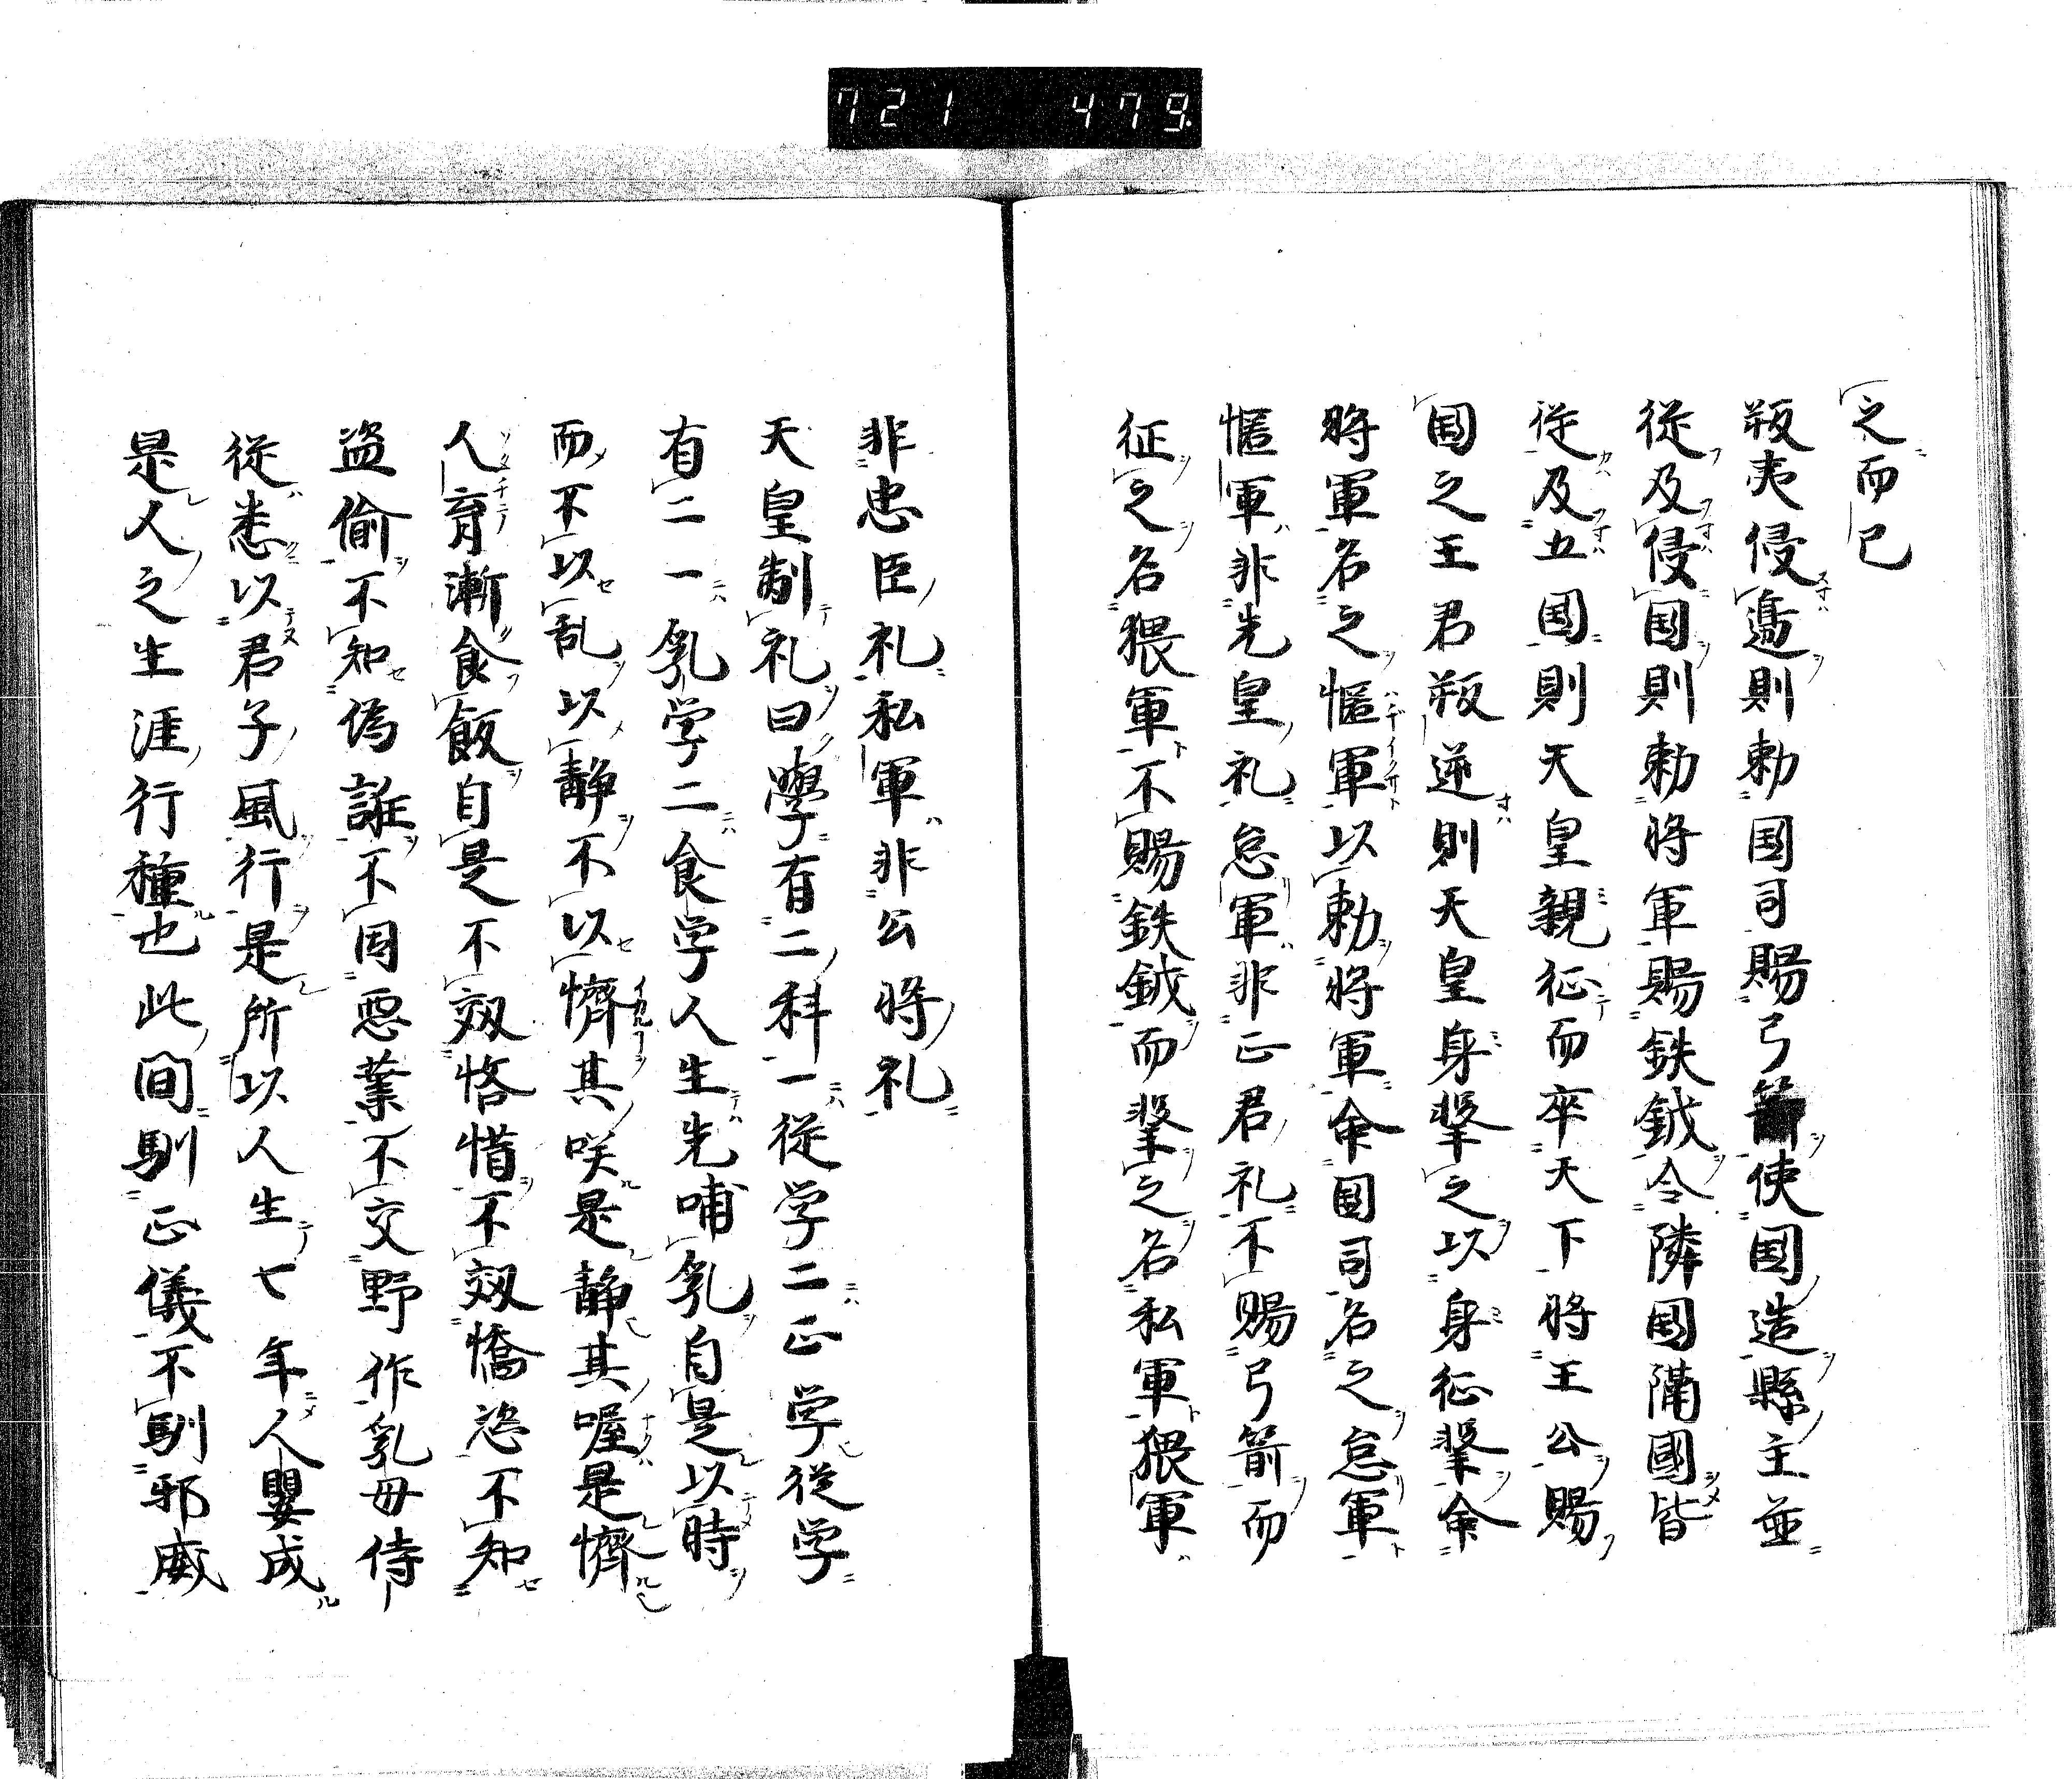 721 479
之而已
叛夷侵邊則勅国司賜弓箭使国造縣主並
從及侵国則勅將軍賜鉄鉞令隣国隔國皆
従及五国則天皇親征而卒天下將王公賜
国之王君叛逆則天皇身撃之以身征撃命
將軍名之慪軍以勅將軍命国司名之怠軍
慪軍非先皇礼怠軍非正君礼不賜弓箭而
征之名猥軍不賜鉄鉞而撃之名私軍猥軍
非忠臣礼私軍非公將礼
天皇制礼曰學有二科一從学二正学從学
有二一乳学二食学人生先哺乳自是以時
而不以乱以静不以懠其咲是静其喔是懠
人育漸食飯自是不効悋惜不効憍恣不知
盗偷不知偽誑不因悪業不交野作乳母侍
從悉以君子風行是所以人生七年人嬰成
是人之生涯行種也此間馴正儀不馴邪威